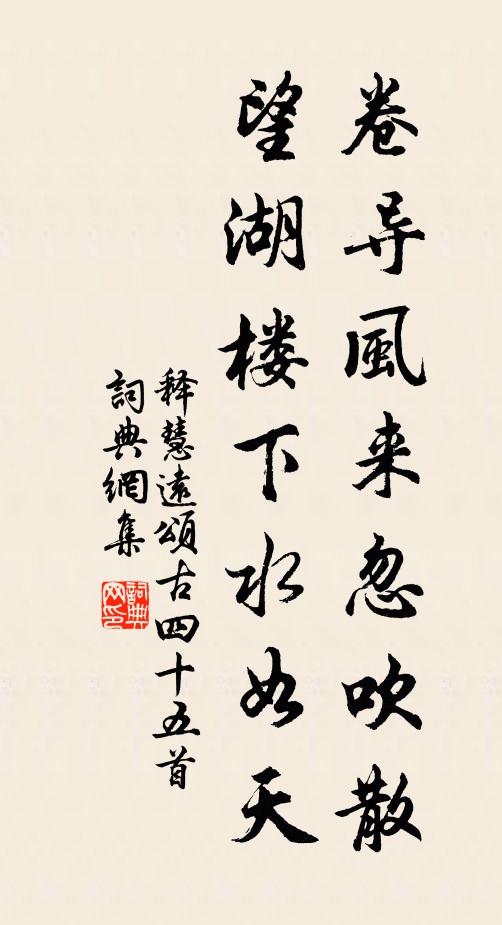 卷导風来忽吹散
望湖楼下水如天
释慧遠頌古四十五首
詞典網集
詞典
网印